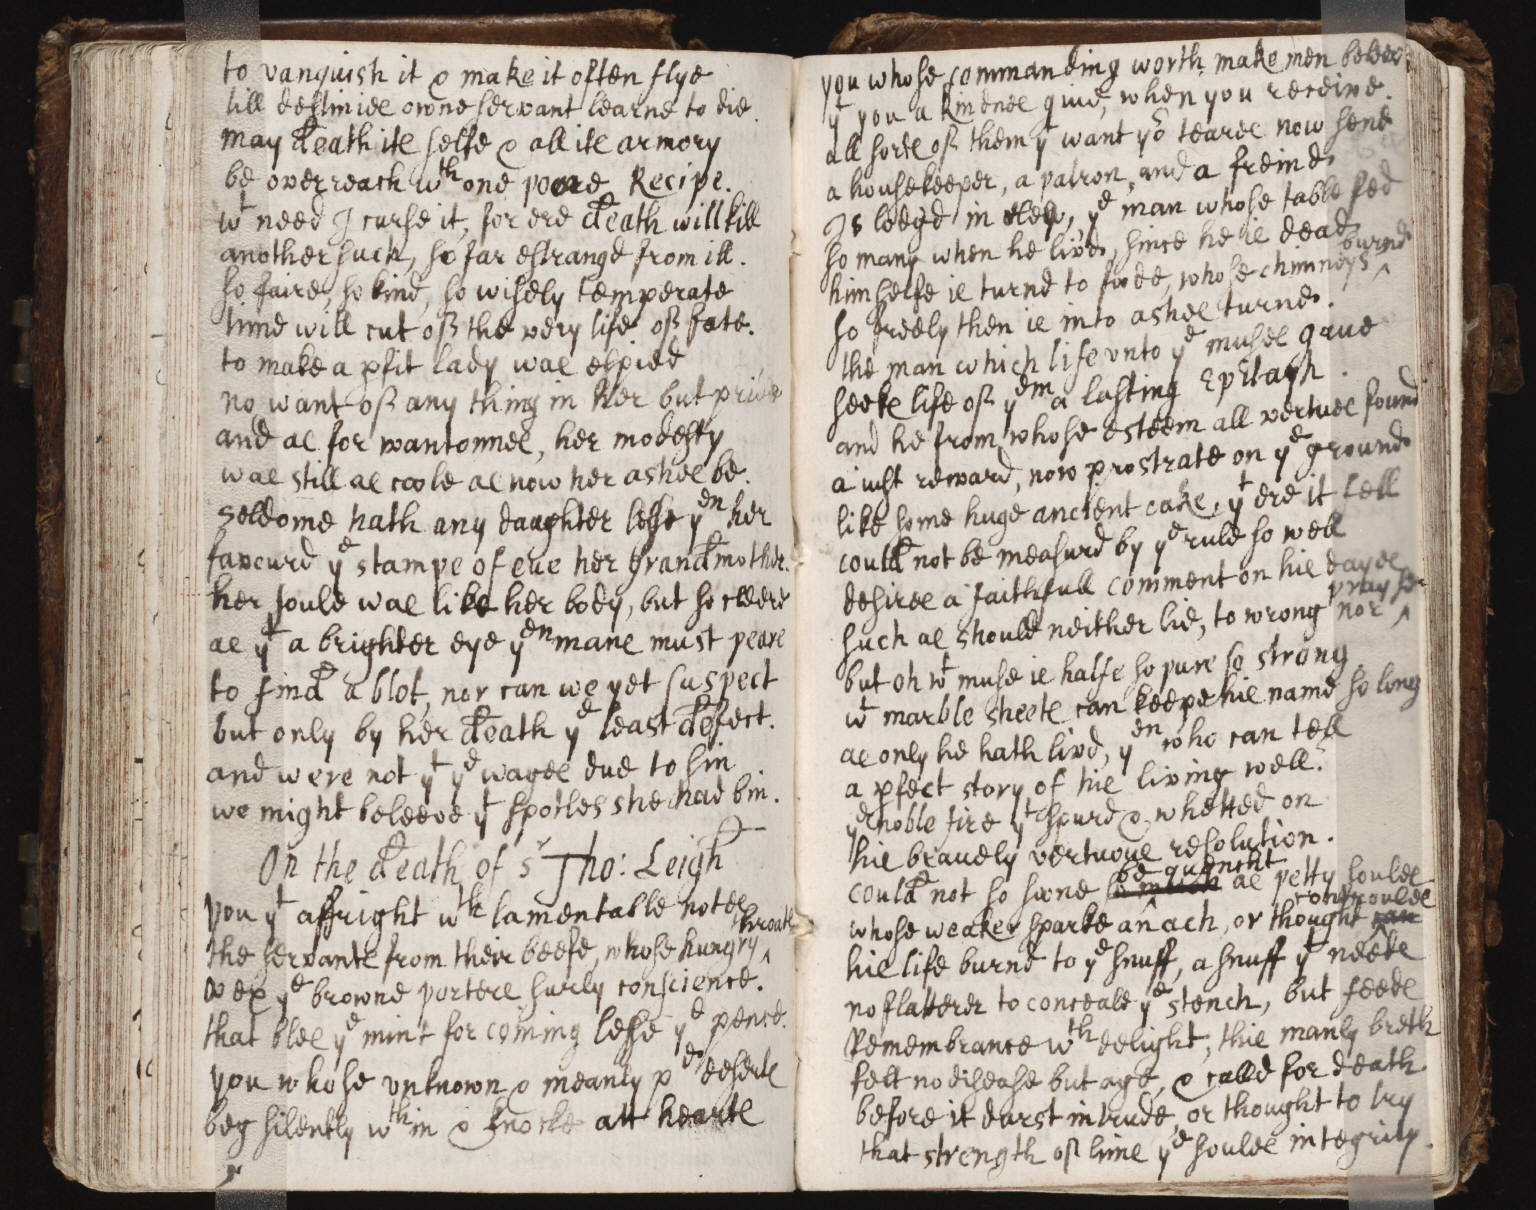 to vanquish it & make it often flye
till destinies owne servant learne to die.
may death its selfe & all its armory
be overreach wth one poore Recipe.
wt need I curse it, for ere death will kill
another such, so far estrangd from ill.
so faire, so kind, so wisely temperate
time will cut off the very life of fate.
to make a pfit lady was espied
no want off any thing in her but pride
and as for wantonnes, her modesty
was still as coole as now her ashes be.
seldome hath any daughter lesse yen her
favourd ye stampe of eue her grandmother.
her soule was like her body, but so cleere
as yt a brighter eye yen mans must peare
to find a blot, nor can we yet suspect
but only by her death ye least defect.
and were not yt ye wages due to sin
we might beleeve yt spotles she had bin.
On the death of sr Tho: Leigh
you yt affright wth lamentable notes
the servants from their beefe, whose hungry throats ^
vex ye browne porters surly conscience.
that bles ye mint for coining lesse ye pence.
you whose vnknown & meanly pd deserts
beg silently wthin & knocke att hearts
you whose commanding worth make men beleev
yt you a kindnes giue, when you receive.
all sorts off them yt want yor teares now send
a housekeeper, a patron, and a freind
Is lodgd in clay, ye man whose table fed
so many when he livd, since he is dead
himselfe is turnd to food, whose chimneys burnd ^
so freely then is into ashes turnd.
the man which life vnto ye muses gaue
seeke life off yem a lasting Epitaph.
and he from whose esteem all vertues found
a iust reward, now prostrate on ye ground
like some huge ancient oake, yt ere it fell
could not be measurd by ye rule so well
desires a faithfull comment on his dayes
such as should neither lie, to wrong nor prayse ^
but oh wt muse is halfe so pure so strong
wt marble sheets can keepe his name so long
as only he hath livd, yen who can tell
a pfect story of his living well?
ye noble fire yt spurd & whetted on
his bravely vertuous resolution.
could not so soone be quencht ^ as petty soules
whose weaker sparke an ach, or thought controules ^
his life burnd to ye snuff, a snuff yt needs
no flatterer to conceale ye stench, but feeds
Remembrance wth delight, this manly breth
felt no disease but age, & calld for death
before it durst intrude, or thought to try
that strength off lime ye soules integrity.